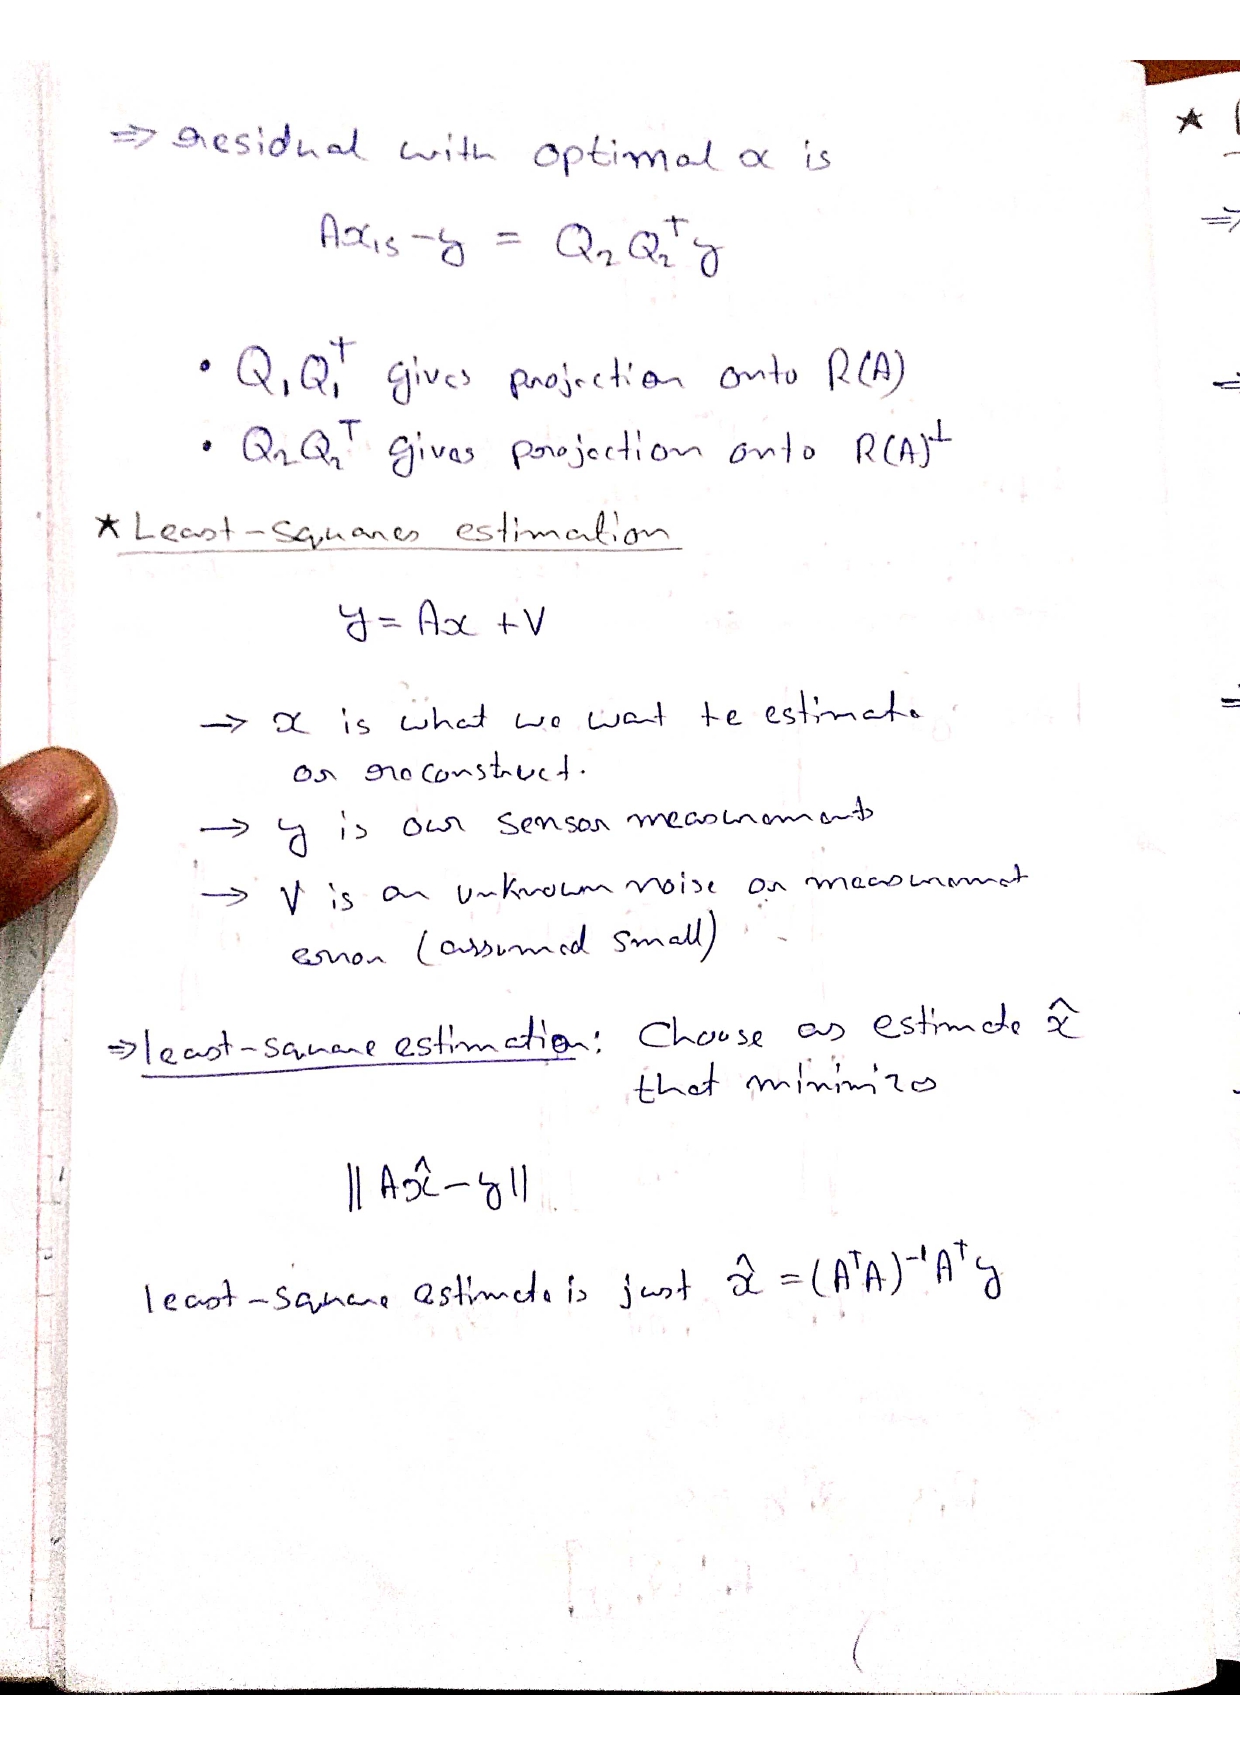 ⇒ residual with optimal x is
Ax₁ₛ - y = Q₂Q₂ᵀy
• Q₁Q₁ᵀ gives projection onto R(A)
• Q₂Q₂ᵀ gives projection onto R(A)⊥
★ Least-squares estimation
y = Ax + V
→ x is what we want to estimate
or reconstruct.
→ y is our sensor measurements
→ V is an unknown noise or measurement
error (assumed small)
⇒ least-square estimation: Choose as estimate x̂
that minimizes
||Ax̂ - y||
least-square estimate is just x̂ = (AᵀA)⁻¹Aᵀy